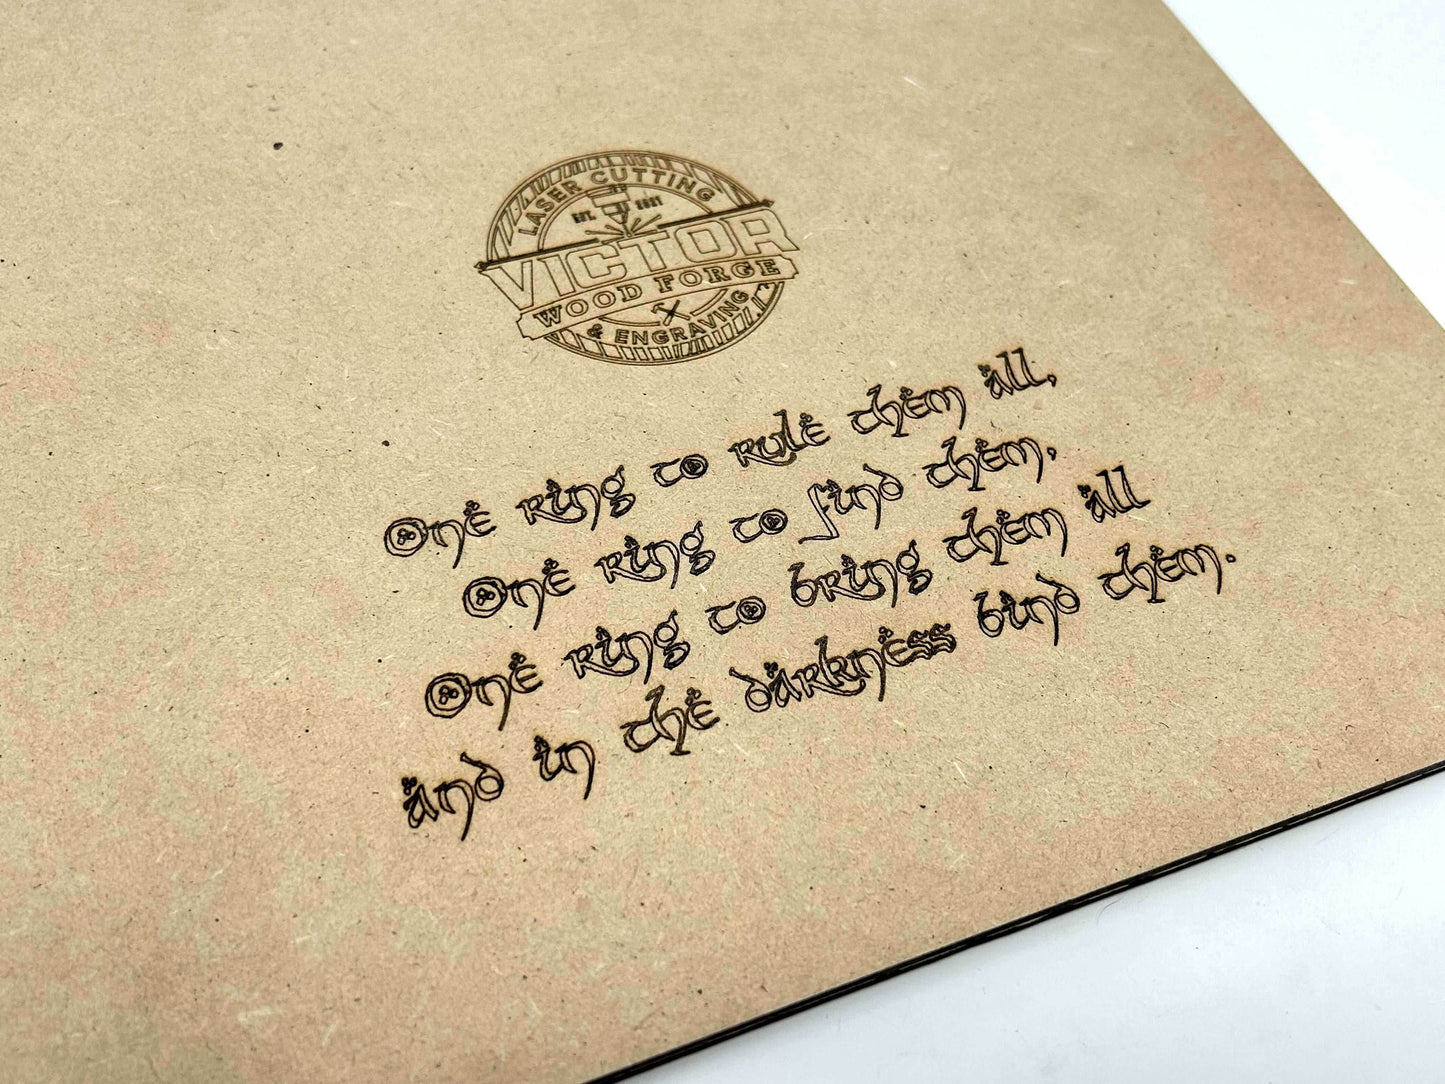 LASER CUTTING
EST. 2021
VICTOR
WOOD FORGE
& ENGRAVING
One ring to rule them all,
One ring to find them,
One ring to bring them all
and in the darkness bind them.